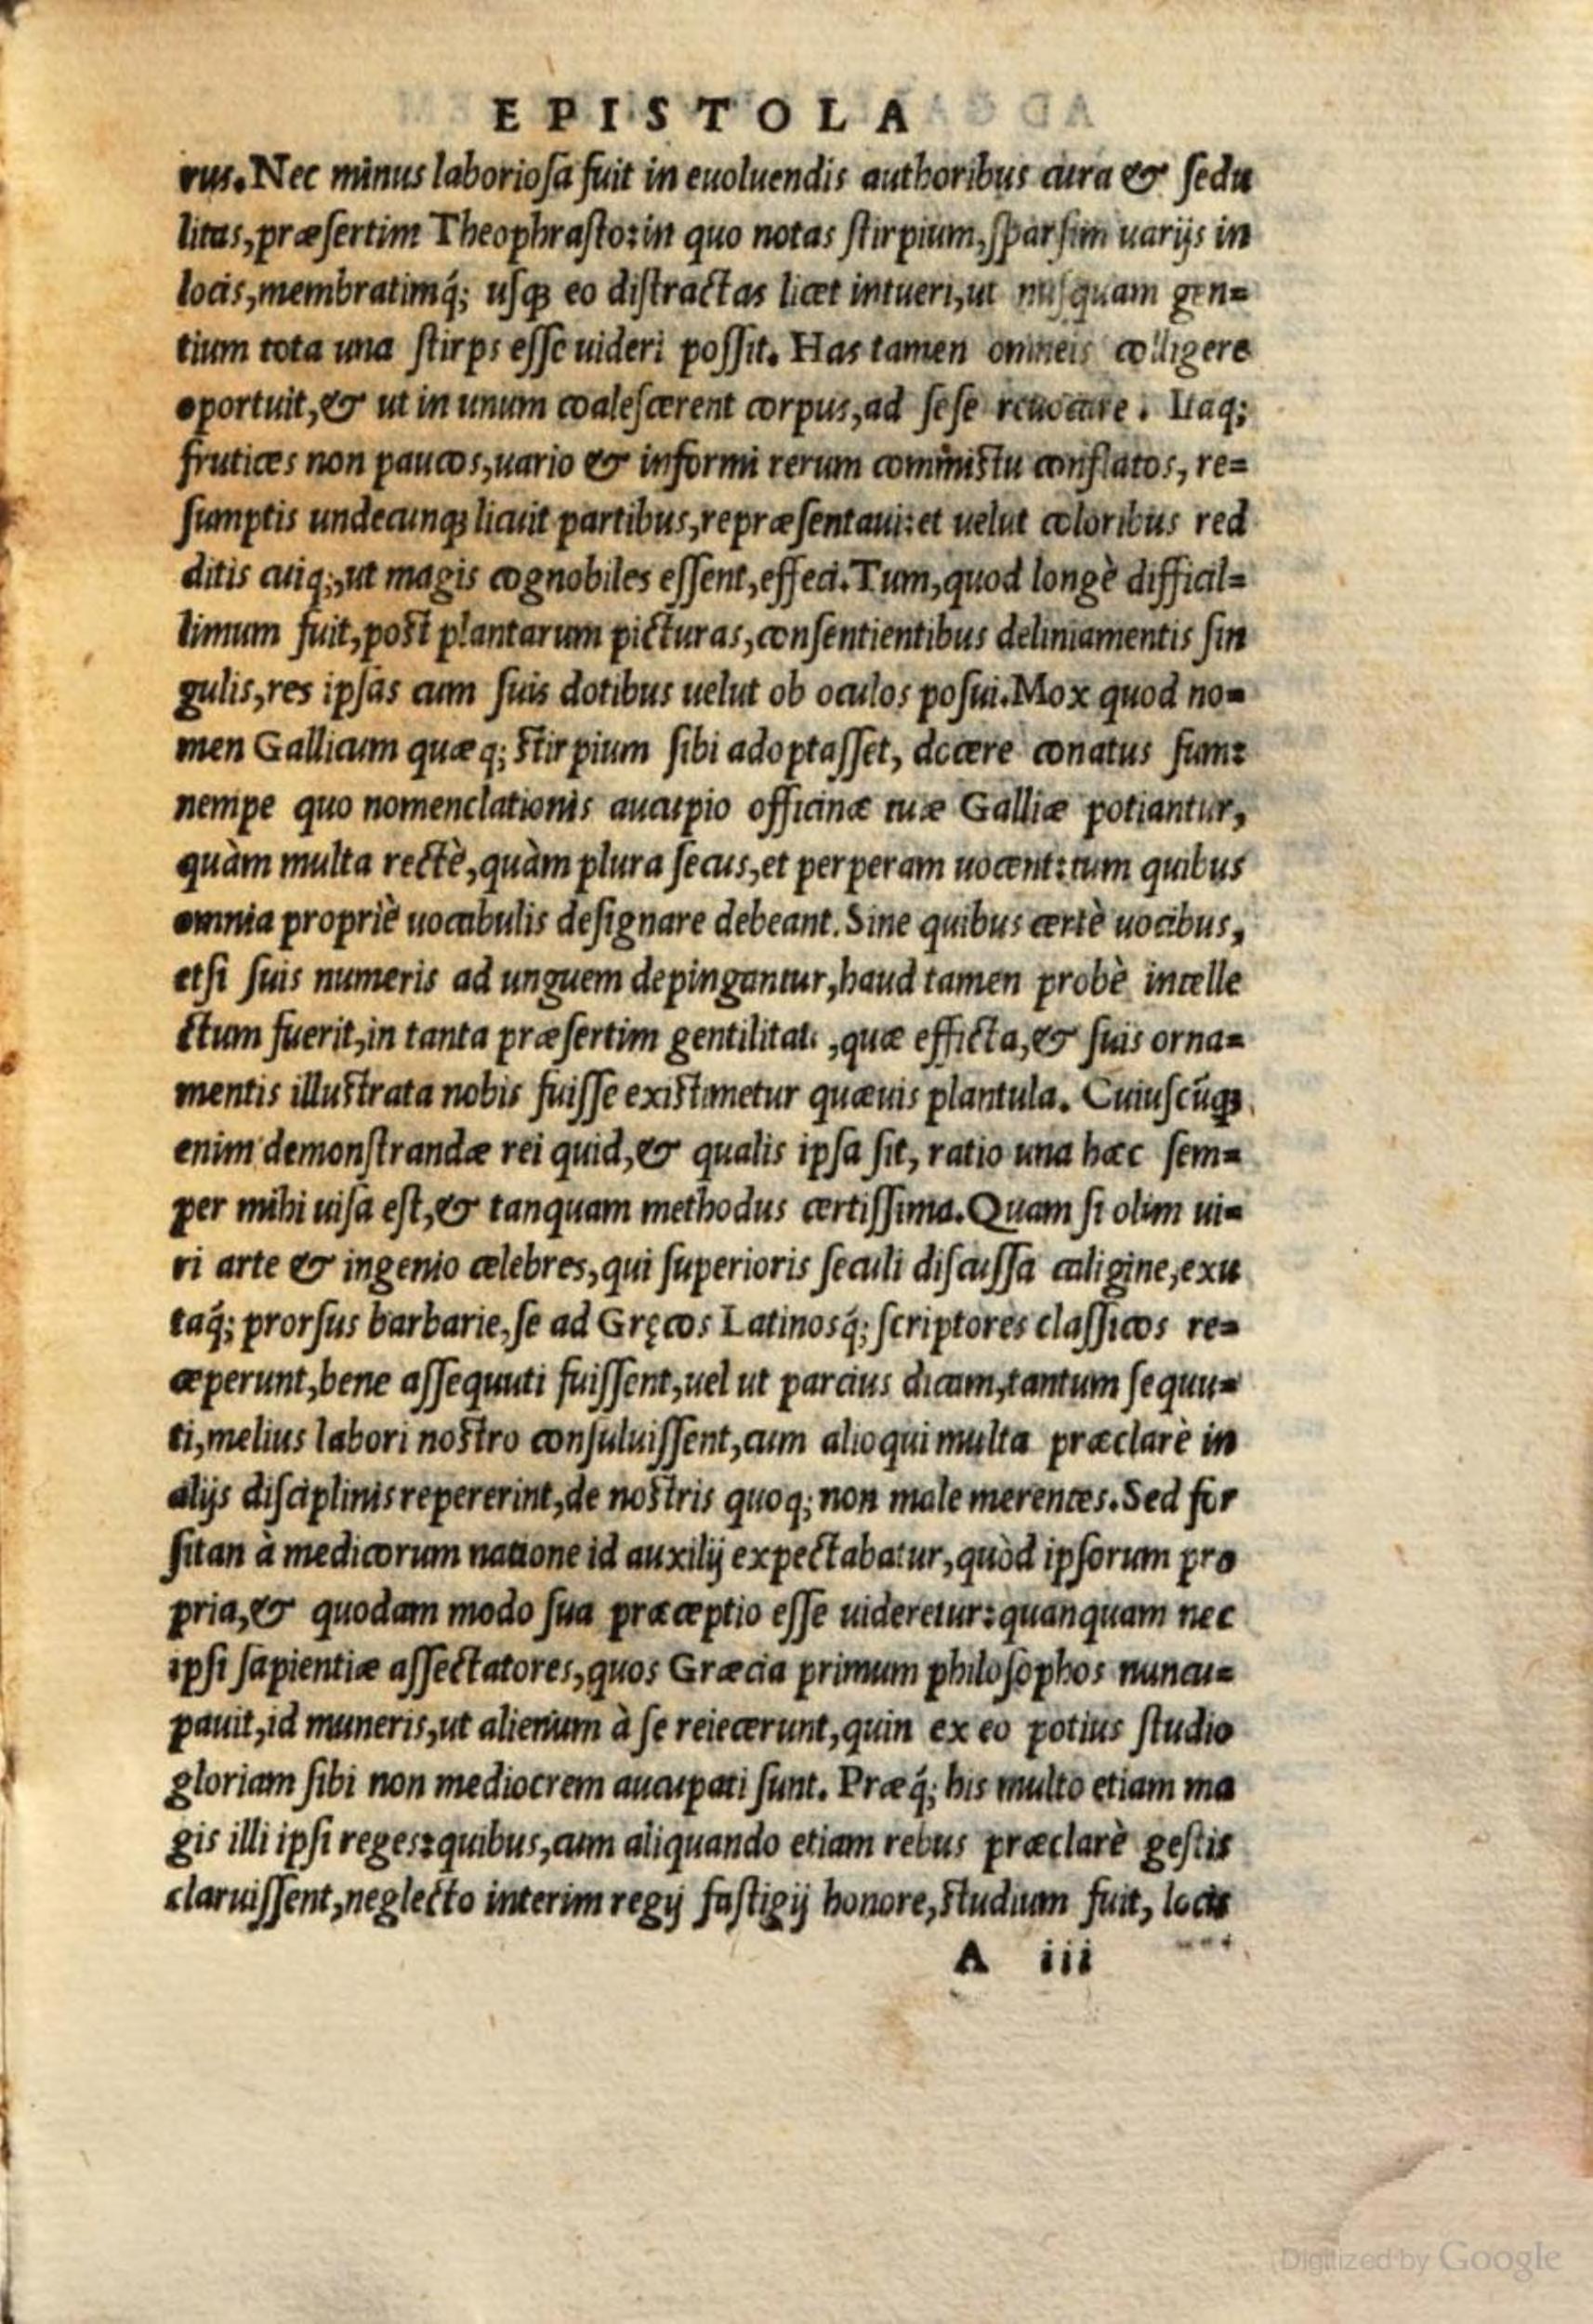 EPISTOLA
rus. Nec minus laboriosa fuit in euoluendis authoribus cura & sedu
litas, præsertim Theophrasto: in quo notas stirpium, sparsim uarijs in
locis, membratimq́; usq; eo distractas licet intueri, ut nusquam gen=
tium tota una stirps esse uideri possit. Has tamen omneis colligere
oportuit, & ut in unum coalescerent corpus, ad sese reuocare. Itaq;
frutices non paucos, uario & informi rerum commistu conflatos, re=
sumptis undecunq; licuit partibus, repræsentaui: et uelut coloribus red
ditis cuiq;, ut magis cognobiles essent, effeci. Tum, quod longè difficil=
limum fuit, post plantarum picturas, consentientibus deliniamentis sin
gulis, res ipsas cum suis dotibus uelut ob oculos posui. Mox quod no=
men Gallicum quæq; stirpium sibi adoptasset, docere conatus sum:
nempe quo nomenclationis aucupio officinæ tuæ Galliæ potiantur,
quàm multa rectè, quàm plura secus, et perperam uocent: tum quibus
omnia propriè uocabulis designare debeant. Sine quibus certè uocibus,
etsi suis numeris ad unguem depingantur, haud tamen probè intelle
ctum fuerit, in tanta præsertim gentilitate, quæ efficta, & suis orna=
mentis illustrata nobis fuisse existimetur quæuis plantula. Cuiuscūq;
enim demonstrandæ rei quid, & qualis ipsa sit, ratio una hæc sem=
per mihi uisa est, & tanquam methodus certissima. Quam si olim ui=
ri arte & ingenio celebres, qui superioris seculi discussa caligine, exu
taq́; prorsus barbarie, se ad Gręcos Latinosq́; scriptores classicos re=
ceperunt, bene assequuti fuissent, uel ut parcius dicam, tantum sequu=
ti, melius labori nostro consuluissent, cum alioqui multa præclarè in
alijs disciplinis repererint, de nostris quoq; non male merentes. Sed for
sitan à medicorum natione id auxilij expectabatur, quòd ipsorum pro
pria, & quodam modo sua præceptio esse uideretur: quanquam nec
ipsi sapientiæ assectatores, quos Græcia primum philosophos nuncu=
pauit, id muneris, ut alienum à se reiecerunt, quin ex eo potius studio
gloriam sibi non mediocrem aucupati sunt. Præq́; his multo etiam ma
gis illi ipsi reges: quibus, cum aliquando etiam rebus præclarè gestis
claruissent, neglecto interim regij fastigij honore, studium fuit, locis
A iii
Digitized by Google